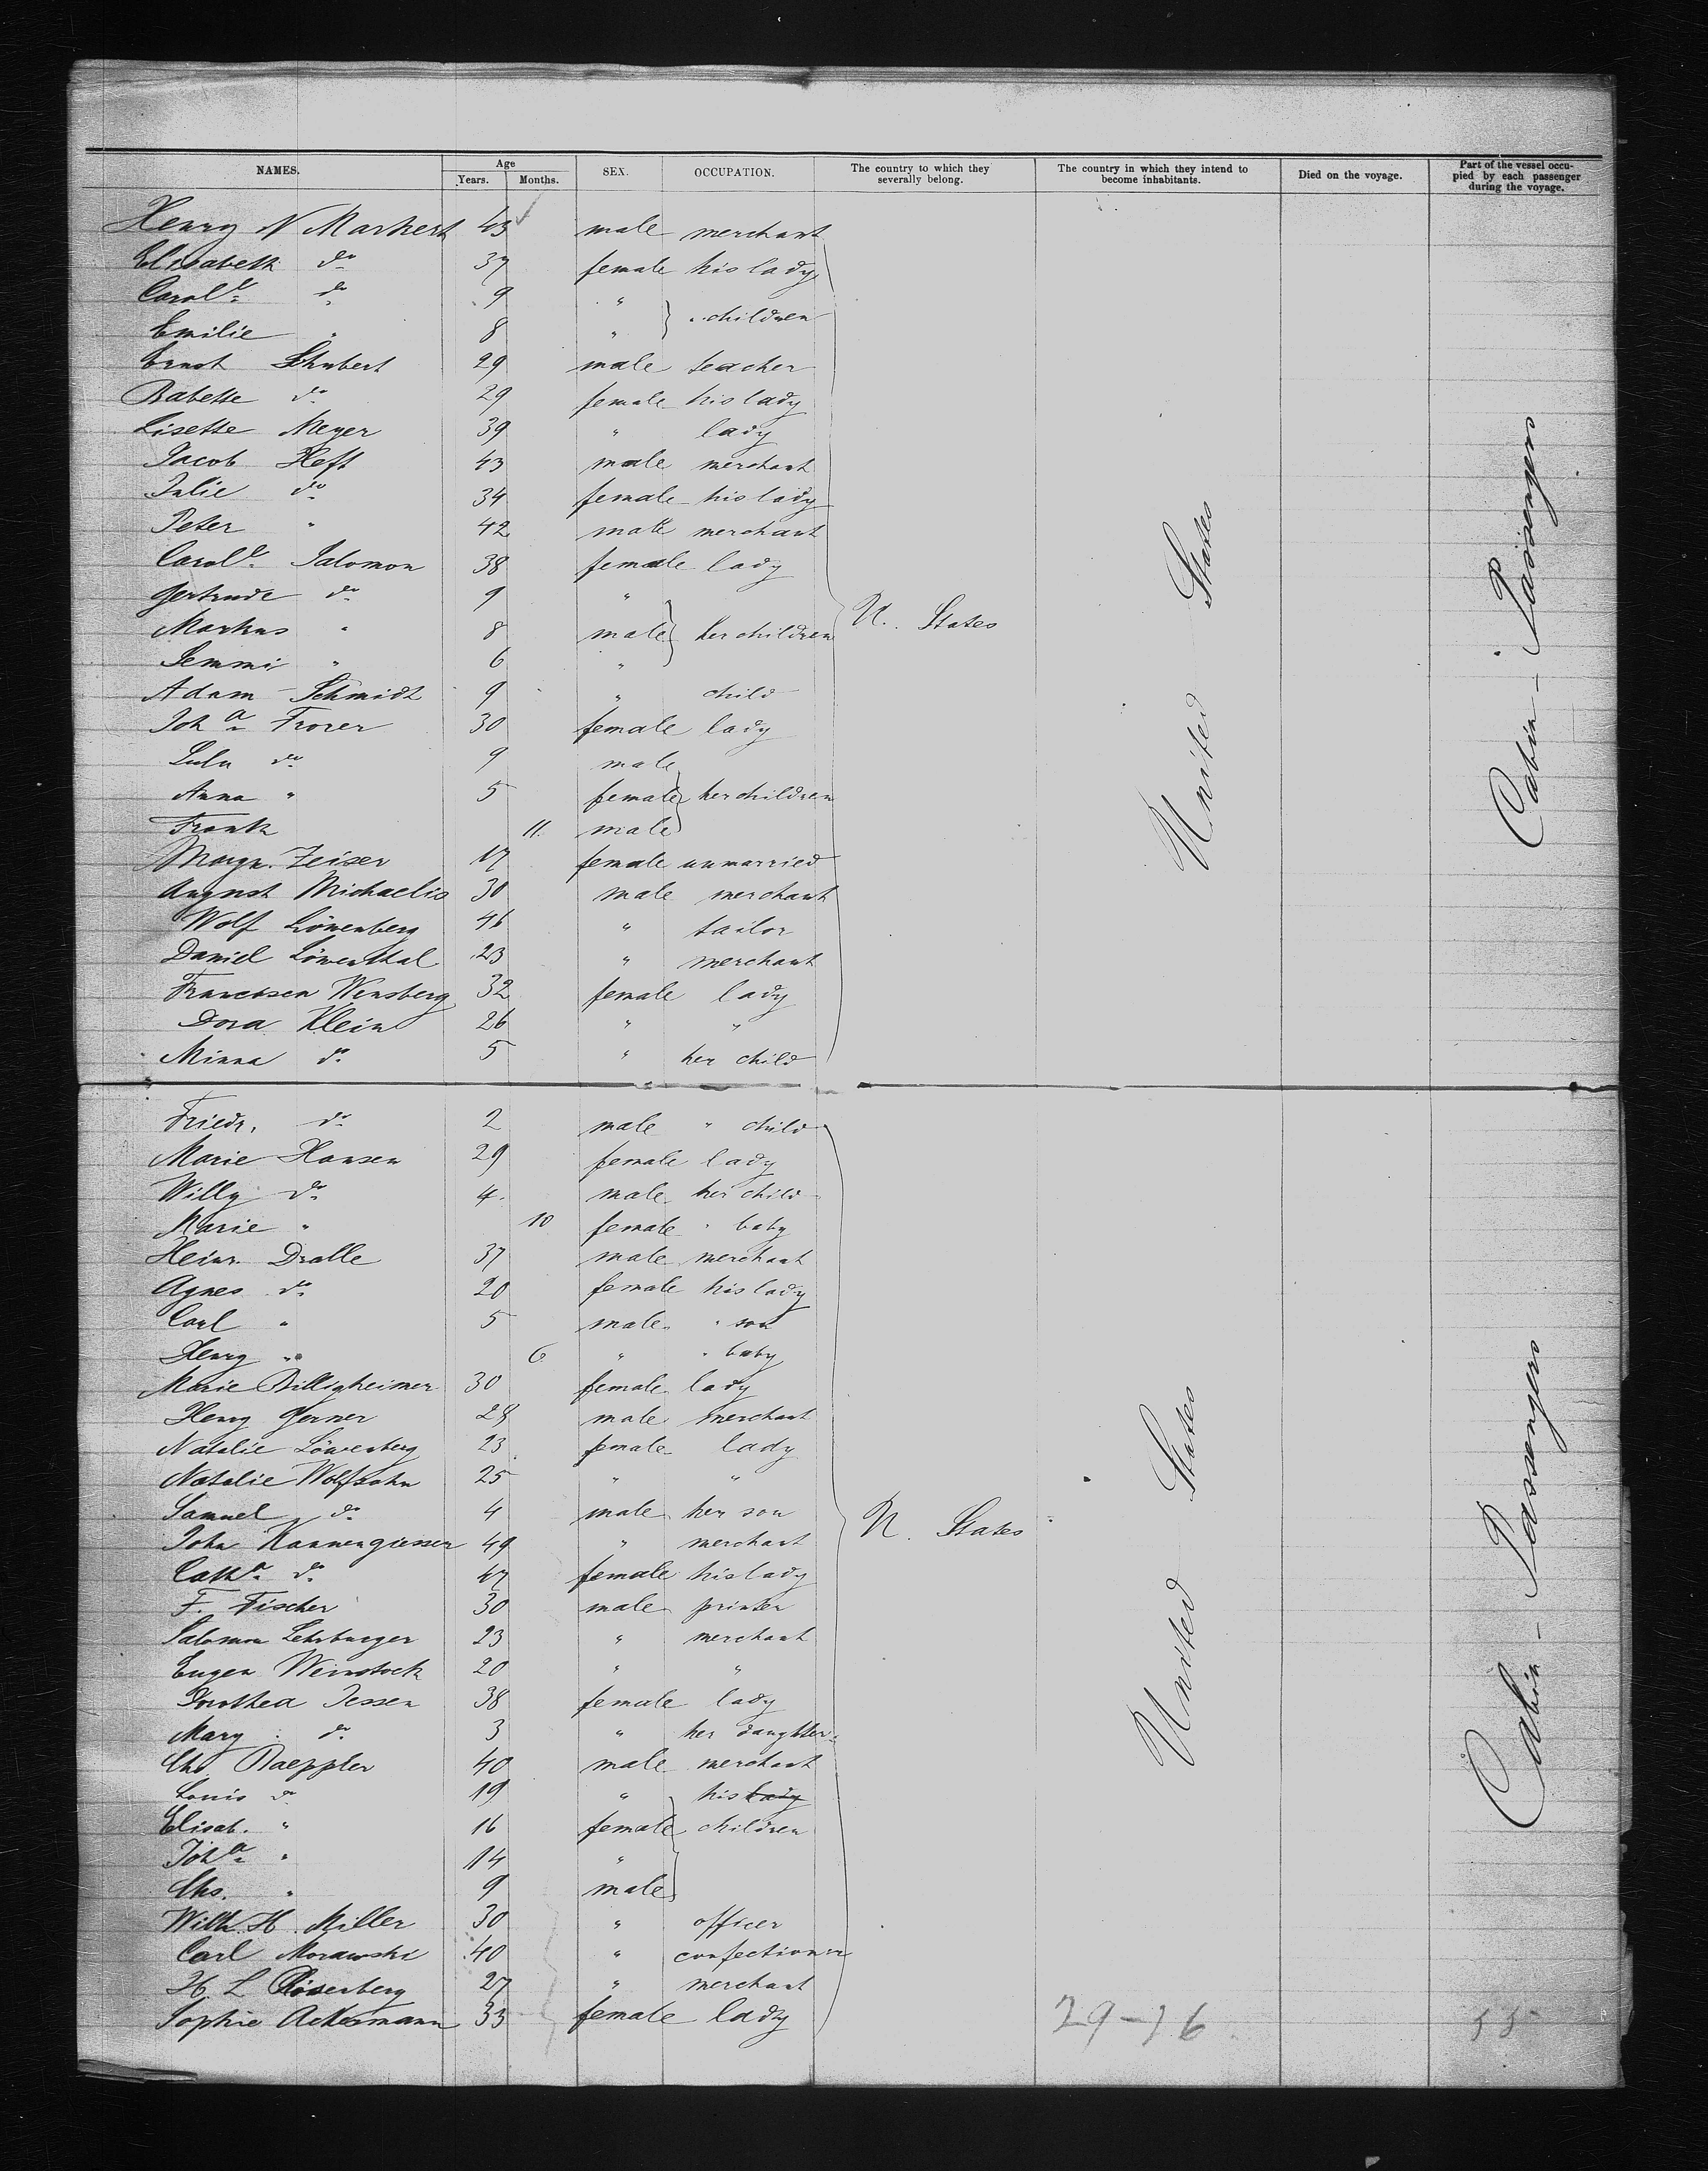 NAMES. Age Years. Months. SEX. OCCUPATION. The country to which they severally belong. The country in which they intend to become inhabitants. Died on the voyage. Part of the vessel occupied by each passenger during the voyage.
Henry N Markert 43 male merchant
Elisabeth do 37 female his lady
Carole do 9 "
Emilie " 8 " children
Ernst Schubert 29 male teacher
Babette do 29 female his lady
Lisette Meyer 39 " lady
Jacob Heft 43 male merchant
Julie do 34 female his lady
Peter " 42 male merchant
Carole Salomon 38 female lady
Gertrude do 9 "
Markus " 8 male her children U. States
Semmi " 6 "
Adam Schmidt 9 " child
Joha Frorer 30 female lady
Lulu do 9 male
Anna " 5 female her children
Frank 11. male
Margr. Zeiser 17 female unmarried
August Michaelis 30 male merchant
Wolf Löwenberg 46 " tailor
Daniel Löwenthal 23 " merchant
Wensberg 32 female lady
Dora Klein 26 " "
Minna do 5 " her child
United States
Cabin - Passengers
Friedr. do 2 male " child
Marie Hansen 29 female lady
Willy do 4. male her child
Marie " 10 female " baby
Heinr. Dralle 37 male merchant
Agnes do 20 female his lady
Carl " 5 male " son
Henry " 6 " " baby
Marie Billigheimer 30 female lady
Henry Gerner 28 male merchant
Natalie Löwenberg 23 female lady
Natalie Wolfsohn 25 " "
Samuel do 4 male her son
John Kannengiesser 49 " merchant U. States
Catha do 47 female his lady
F. Fischer 30 male printer
Salomon Lehrburger 23 " merchant
Eugen Weinstock 20 " "
Dorothea Jessen 38 female lady
Mary do 3 " her daughter
Chs. Raeppler 40 male merchant
Louis do 19 " his lady
Elisab. " 16 female children
Joha " 14 "
Chs. " 9 male
Wilh. H. Miller 30 " officer
Carl Morawski 40 " confectioner
H. L. Roserberg 27 " merchant
Sophie Ackermann 33 female lady
United States
Cabin - Passengers
29-26 55